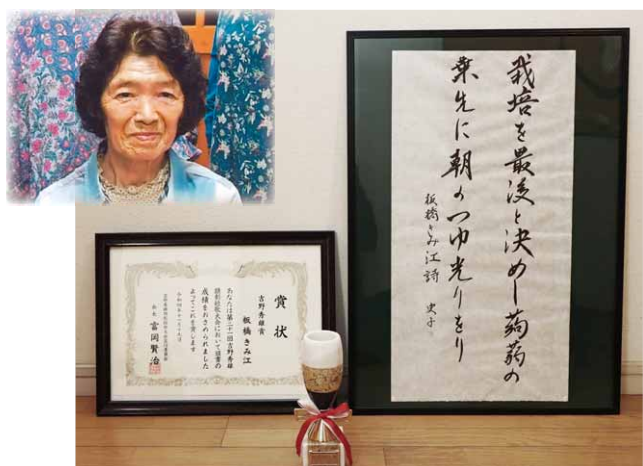 栽培を最後と決めし蒟蒻の
葉先に朝のつゆ光りをり
板橋きみ江詩 史子
賞状
吉野秀雄賞
板橋きみ江
あなたは第二十一回吉野秀雄
顕彰短歌大会において頭書の
成績をおさめられました
よってこれを賞します
富岡賢治